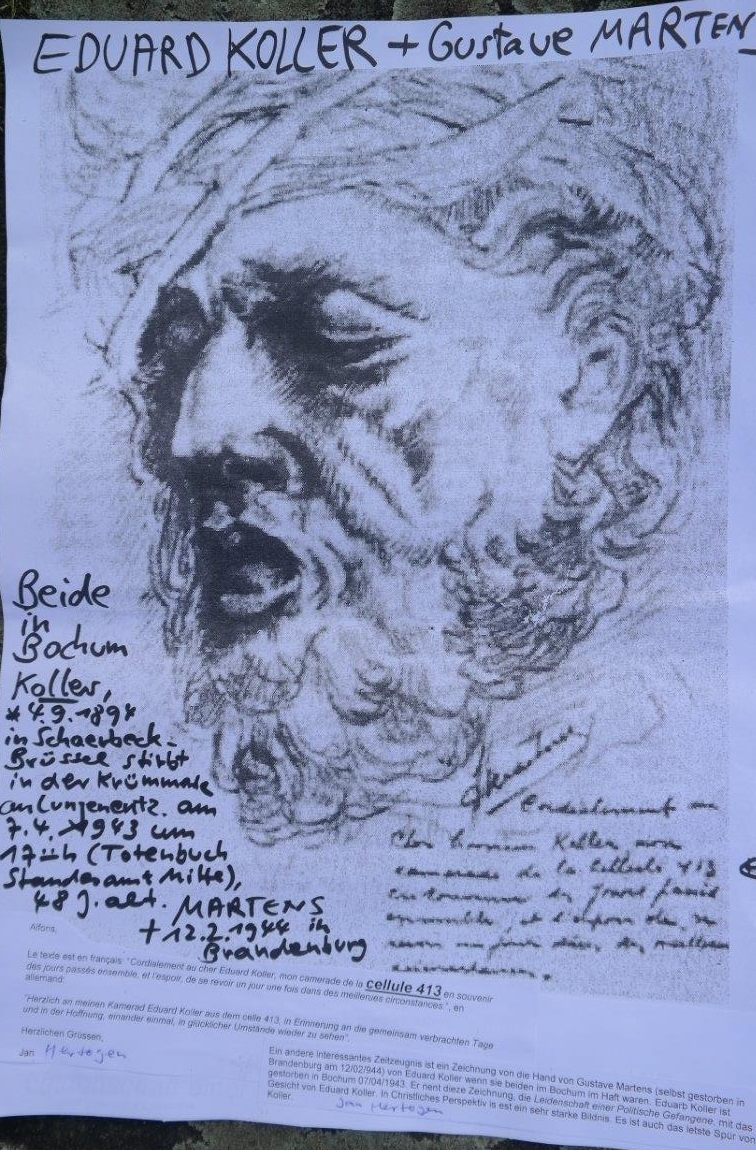 EDUARD KOLLER + Gustave MARTENS
Beide
in
Bochum
Koller,
* 4.9.1894
in Schaerbeck-
Brüssel stirbt
in der Krümmede
an Lungenentz. am
7.4.1943 um
17 Uh (Totenbuch
Standesamt Mitte),
48 J. alt.
MARTENS
+ 12.2.1944 in
Brandenburg
Cordialement au
Cher Koller, mon
camarade de la Cellule 413
ensemble, et l'espoir de, se
Alfons,
Le texte est en français: "Cordialement au cher Eduard Koller, mon camarade de la cellule 413 en souvenir
des jours passés ensemble, et l'espoir, de se revoir un jour une fois dans des meilleures circonstances.", en
allemand:
"Herzlich an meinen Kamerad Eduard Koller aus dem celle 413, in Erinnerung an die gemeinsam verbrachten Tage
und in der Hoffnung, einander einmal, in glücklicher Umstände wieder zu sehen".
Herzlichen Grüssen,
Jan Hertogen
Ein andere interessantes Zeitzeugnis ist ein Zeichnung von die Hand von Gustave Martens (selbst gestorben in
Brandenburg am 12/02/944) von Eduard Koller wenn sie beiden im Bochum im Haft waren. Eduarb Koller ist
gestorben in Bochum 07/04/1943. Er nent dieze Zeichnung, die Leidenschaft einer Politische Gefangene, mit das
Gesicht von Eduard Koller. In Christliches Perspektiv is est ein sehr starke Bildnis. Es ist auch das letste Spur von
Koller.
Jan Hertogen